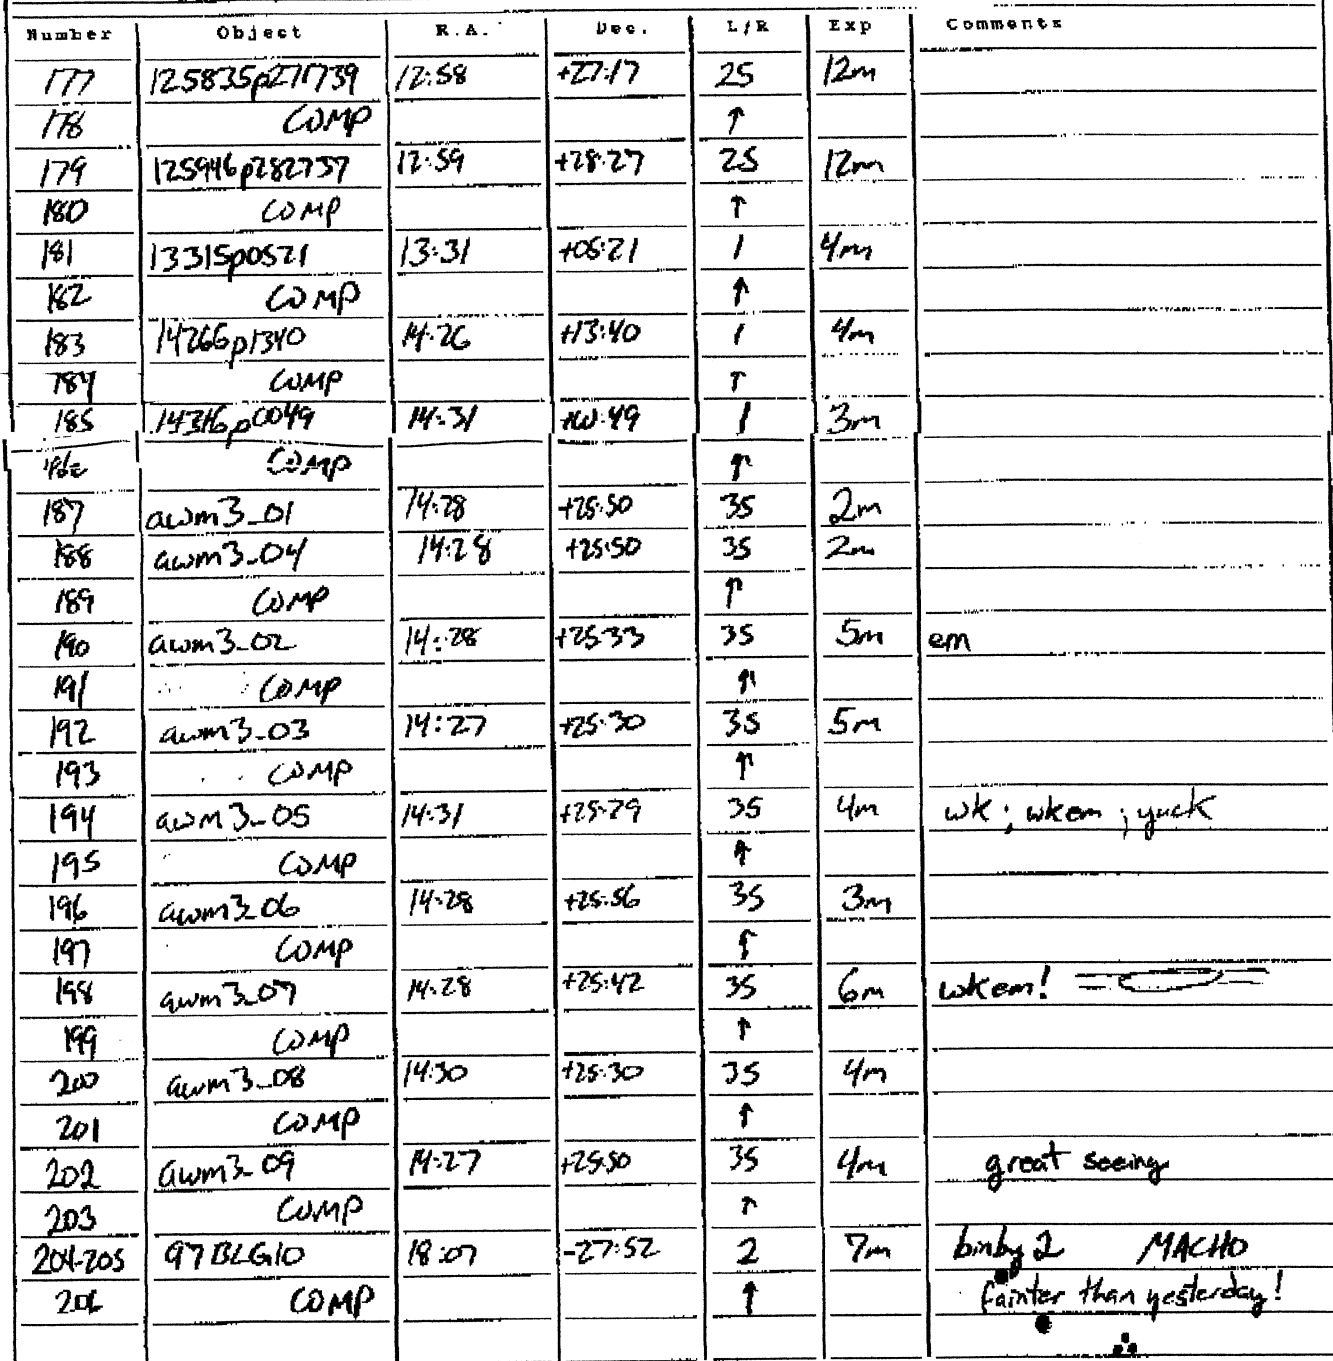 Number Object R.A. Dec. L/R Exp Comments
177 125835p271739 12:58 +27:17 25 12m
178 COMP ↑
179 125946p282737 12:59 +28:27 25 12m
180 COMP ↑
181 13315p0521 13:31 +05:21 1 4m
182 COMP ↑
183 14266p1340 14:26 +13:40 1 4m
184 COMP ↑
185 14316p0049 14:31 +00:49 1 3m
COMP ↑
187 awm3_01 14:28 +25:50 35 2m
188 awm3_04 14:28 +25:50 35 2m
189 COMP ↑
190 awm3_02 14:28 +25:33 35 5m em
191 COMP ↑
192 awm3_03 14:27 +25:30 35 5m
193 COMP ↑
194 awm3_05 14:31 +25:29 35 4m wk; wkem; yuck
195 COMP ↑
196 awm3_06 14:28 +25:56 35 3m
197 COMP ↑
198 awm3_07 14:28 +25:42 35 6m wkem!
199 COMP ↑
200 awm3_08 14:30 +25:30 35 4m
201 COMP ↑
202 awm3_09 14:27 +25:50 35 4m great seeing
203 COMP ↑
204-205 97BLG10 18:07 -27:52 2 7m binby2 MACHO
206 COMP ↑ fainter than yesterday!